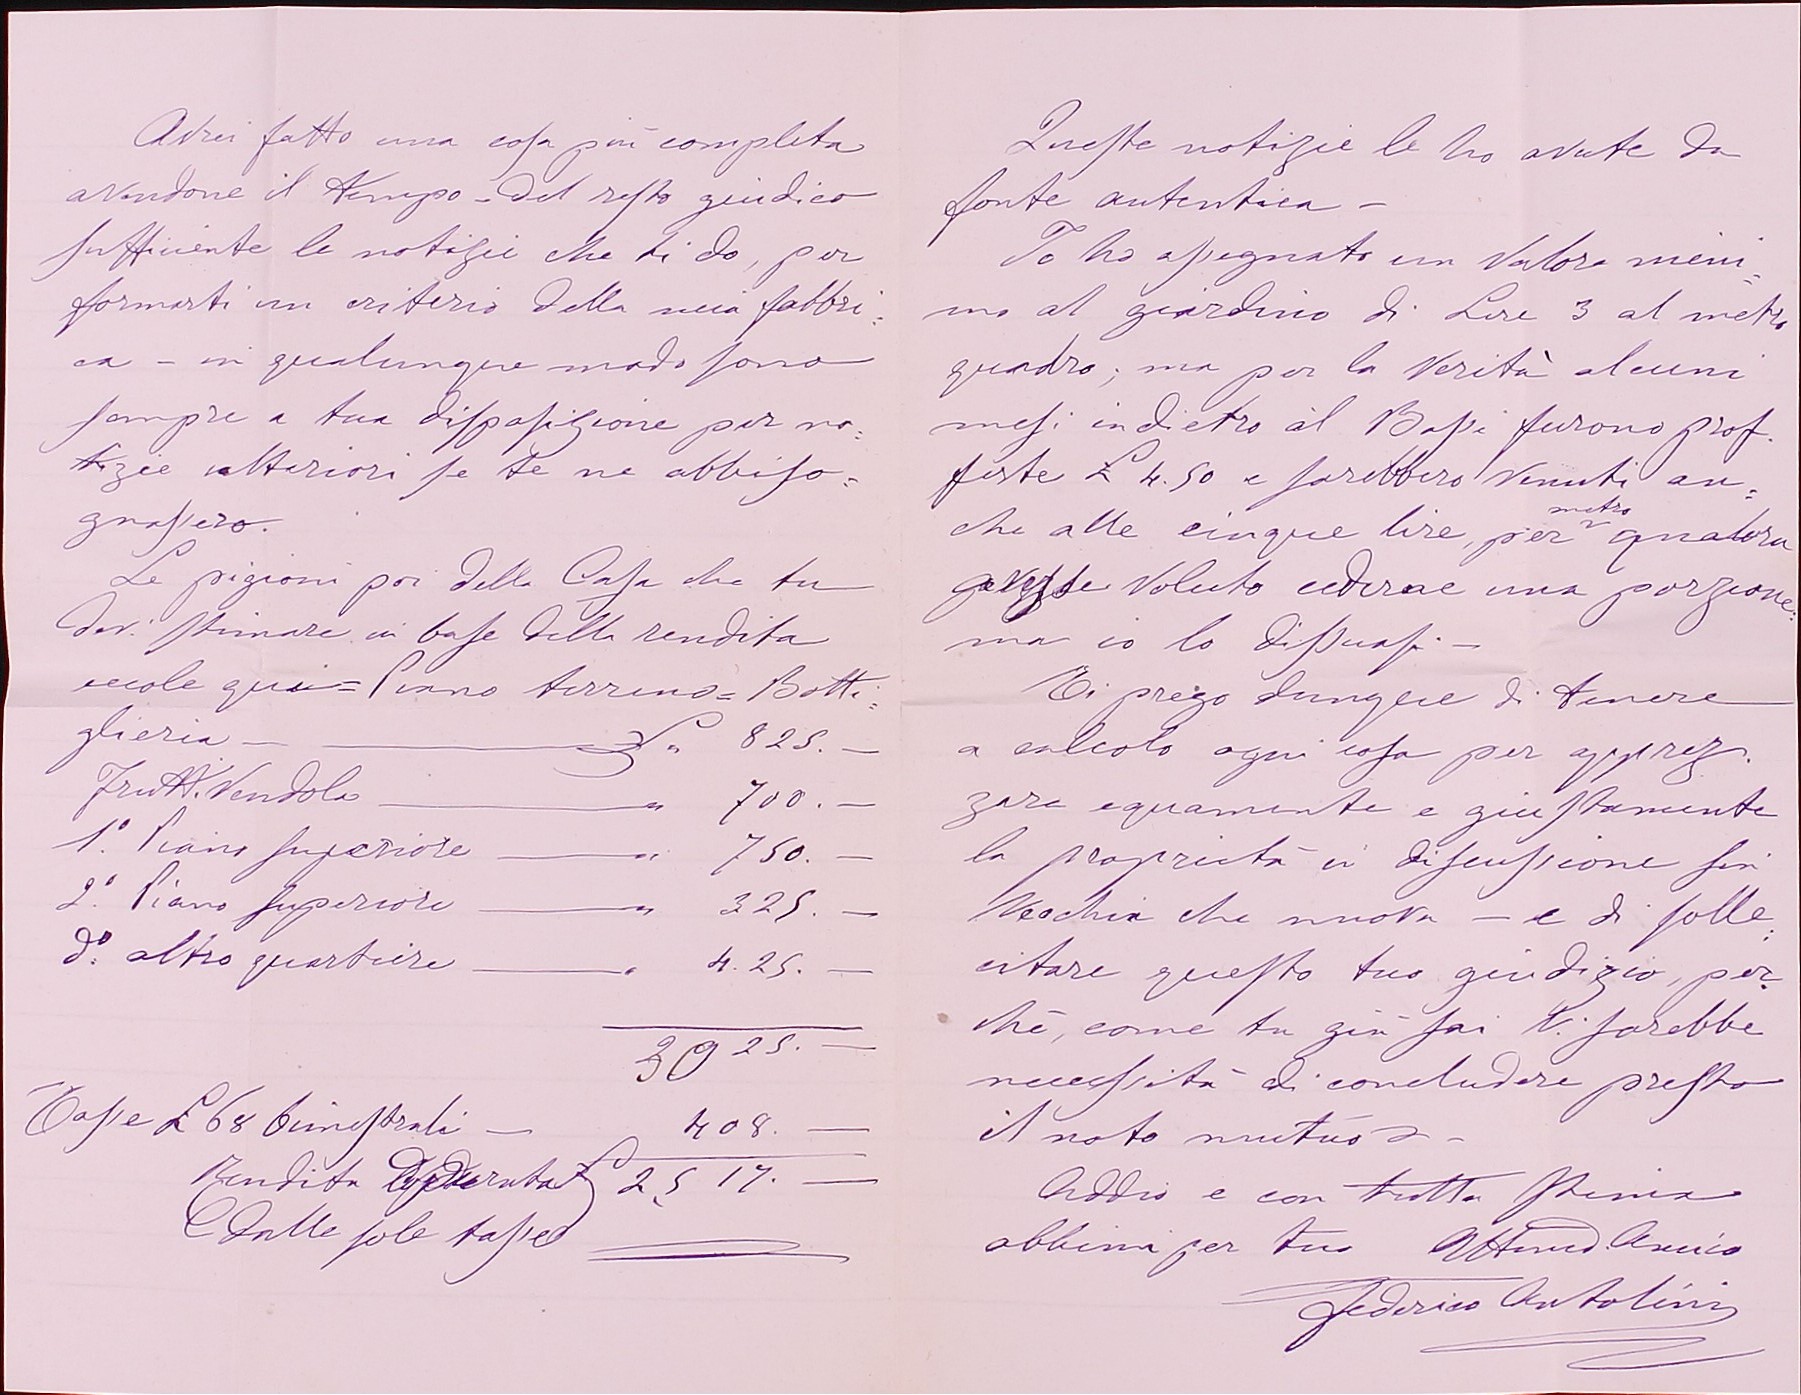 Avrei fatto una cosa più completa
avendone il tempo - Del resto giudico
sufficiente le notizie che ti do, per
formarti un criterio della mia fabbri=
ca - in qualunque modo sono
sempre a tua disposizione per no=
tizie ulteriori se te ne abbiso=
gnassero.
Le pigioni poi della Casa che tu
devi stimare in base della rendita
eccole qui = Piano terreno = Botti=
glieria - £ " 825. -
Frutt. Vendolo " 700. -
1.º Piano superiore " 750. -
2.º Piano superiore " 325. -
d.º altro quartiere " 425. -
3025. -
Tasse £ 68 bimestrali - 408. -
Rendita depurata £ 2517. -
dalle sole tasse
Queste notizie le ho avute da
fonte autentica -
Io ho assegnato un valore mini=
mo al giardino di Lire 3 al metro
quadro; ma per la verità alcuni
mesi indietro al Bassi furono prof.
ferte £ 4.50 e sarebbero venuti an=
che alle cinque lire, per metro qualora
avesse voluto cederne una porzione:
ma io lo dissuasi -
Ti prego dunque di tenere
a calcolo ogni cosa per apprez.
zare equamente e giustamente
la proprietà in discussione sia
Vecchia che nuova - e di solle=
citare questo tuo giudizio, per=
chè, come tu già sai vi sarebbe
necessità di concludere presto
il noto mutuo -
Addio e con tutta stima
abbimi per tuo Affmo Amico
Federico Antolini